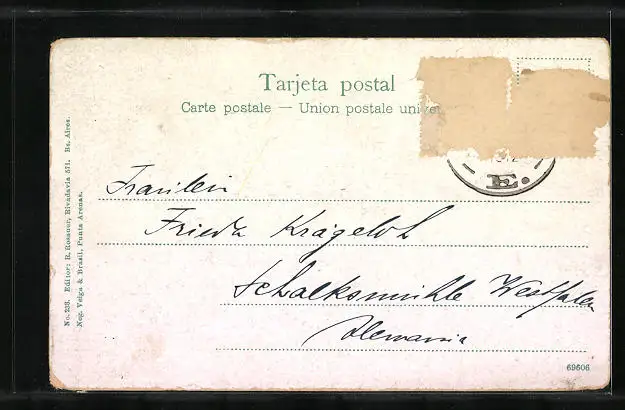 Tarjeta postal
Carte postale — Union postale unive
E.
Fräulein
Frieda Krägeloh
Schalksmühle Westfalen
Alemania
No. 238. Editor: R. Rosauer, Rivadavia 571. Bs. Aires.
Neg. Veiga & Brasil, Punta Arenas.
69606